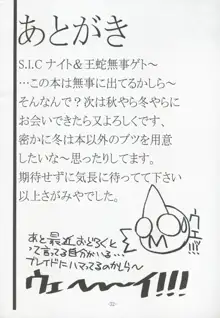 あとがき
S.I.Cナイト＆王蛇無事ゲト～
…この本は無事に出てるかしら～
そんなんで？次は秋やら冬やらに
お会いできたら又よろしくです、
密かに冬は本以外のブツを用意
したいな～思ったりしてます。
期待せずに気長に待ってて下さい
以上さがみやでした。
ウェーイ
あと最近 おどろくと
って言ってる自分がいる…
ブレイドにハマってるのかしら～
ウェーーイ!!!